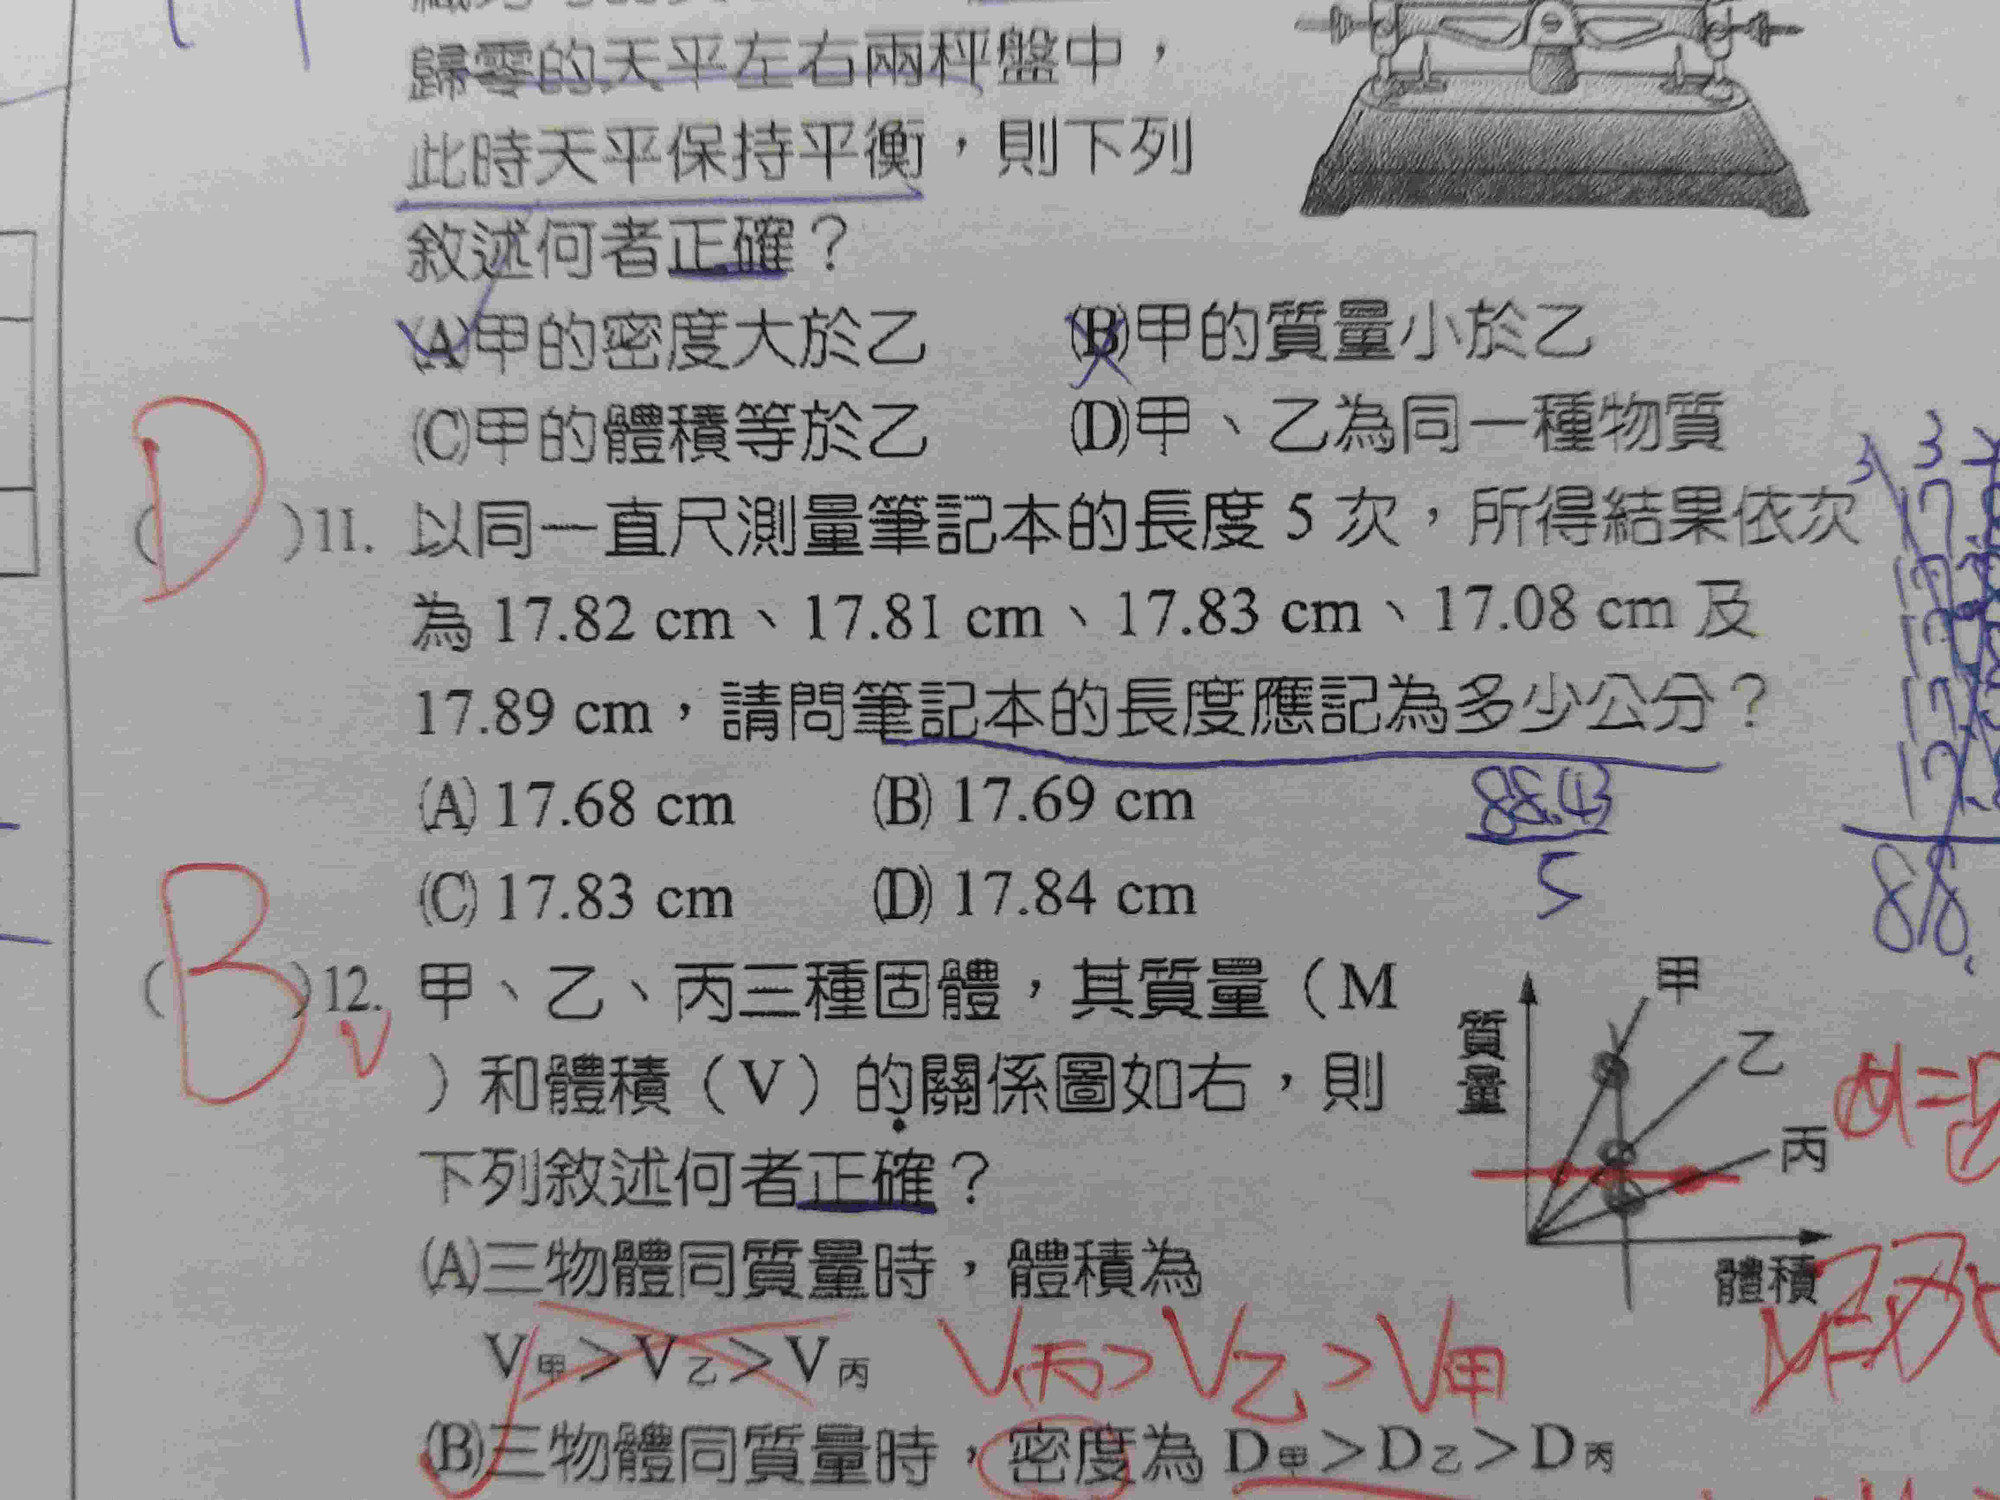 歸零的天平左右兩秤盤中，
此時天平保持平衡，則下列
敘述何者正確？
(A)甲的密度大於乙 (B)甲的質量小於乙
(C)甲的體積等於乙 (D)甲、乙為同一種物質
(D)11. 以同一直尺測量筆記本的長度 5 次，所得結果依次
為 17.82 cm、17.81 cm、17.83 cm、17.08 cm 及
17.89 cm，請問筆記本的長度應記為多少公分？
(A) 17.68 cm (B) 17.69 cm
(C) 17.83 cm (D) 17.84 cm
88.43
5
88.
(B)12. 甲、乙、丙三種固體，其質量（M
）和體積（V）的關係圖如右，則
下列敘述何者正確？
質量
甲
乙
丙
體積
(A)三物體同質量時，體積為
V甲＞V乙＞V丙 V丙>V乙>V甲
(B)三物體同質量時，密度為 D甲＞D乙＞D丙